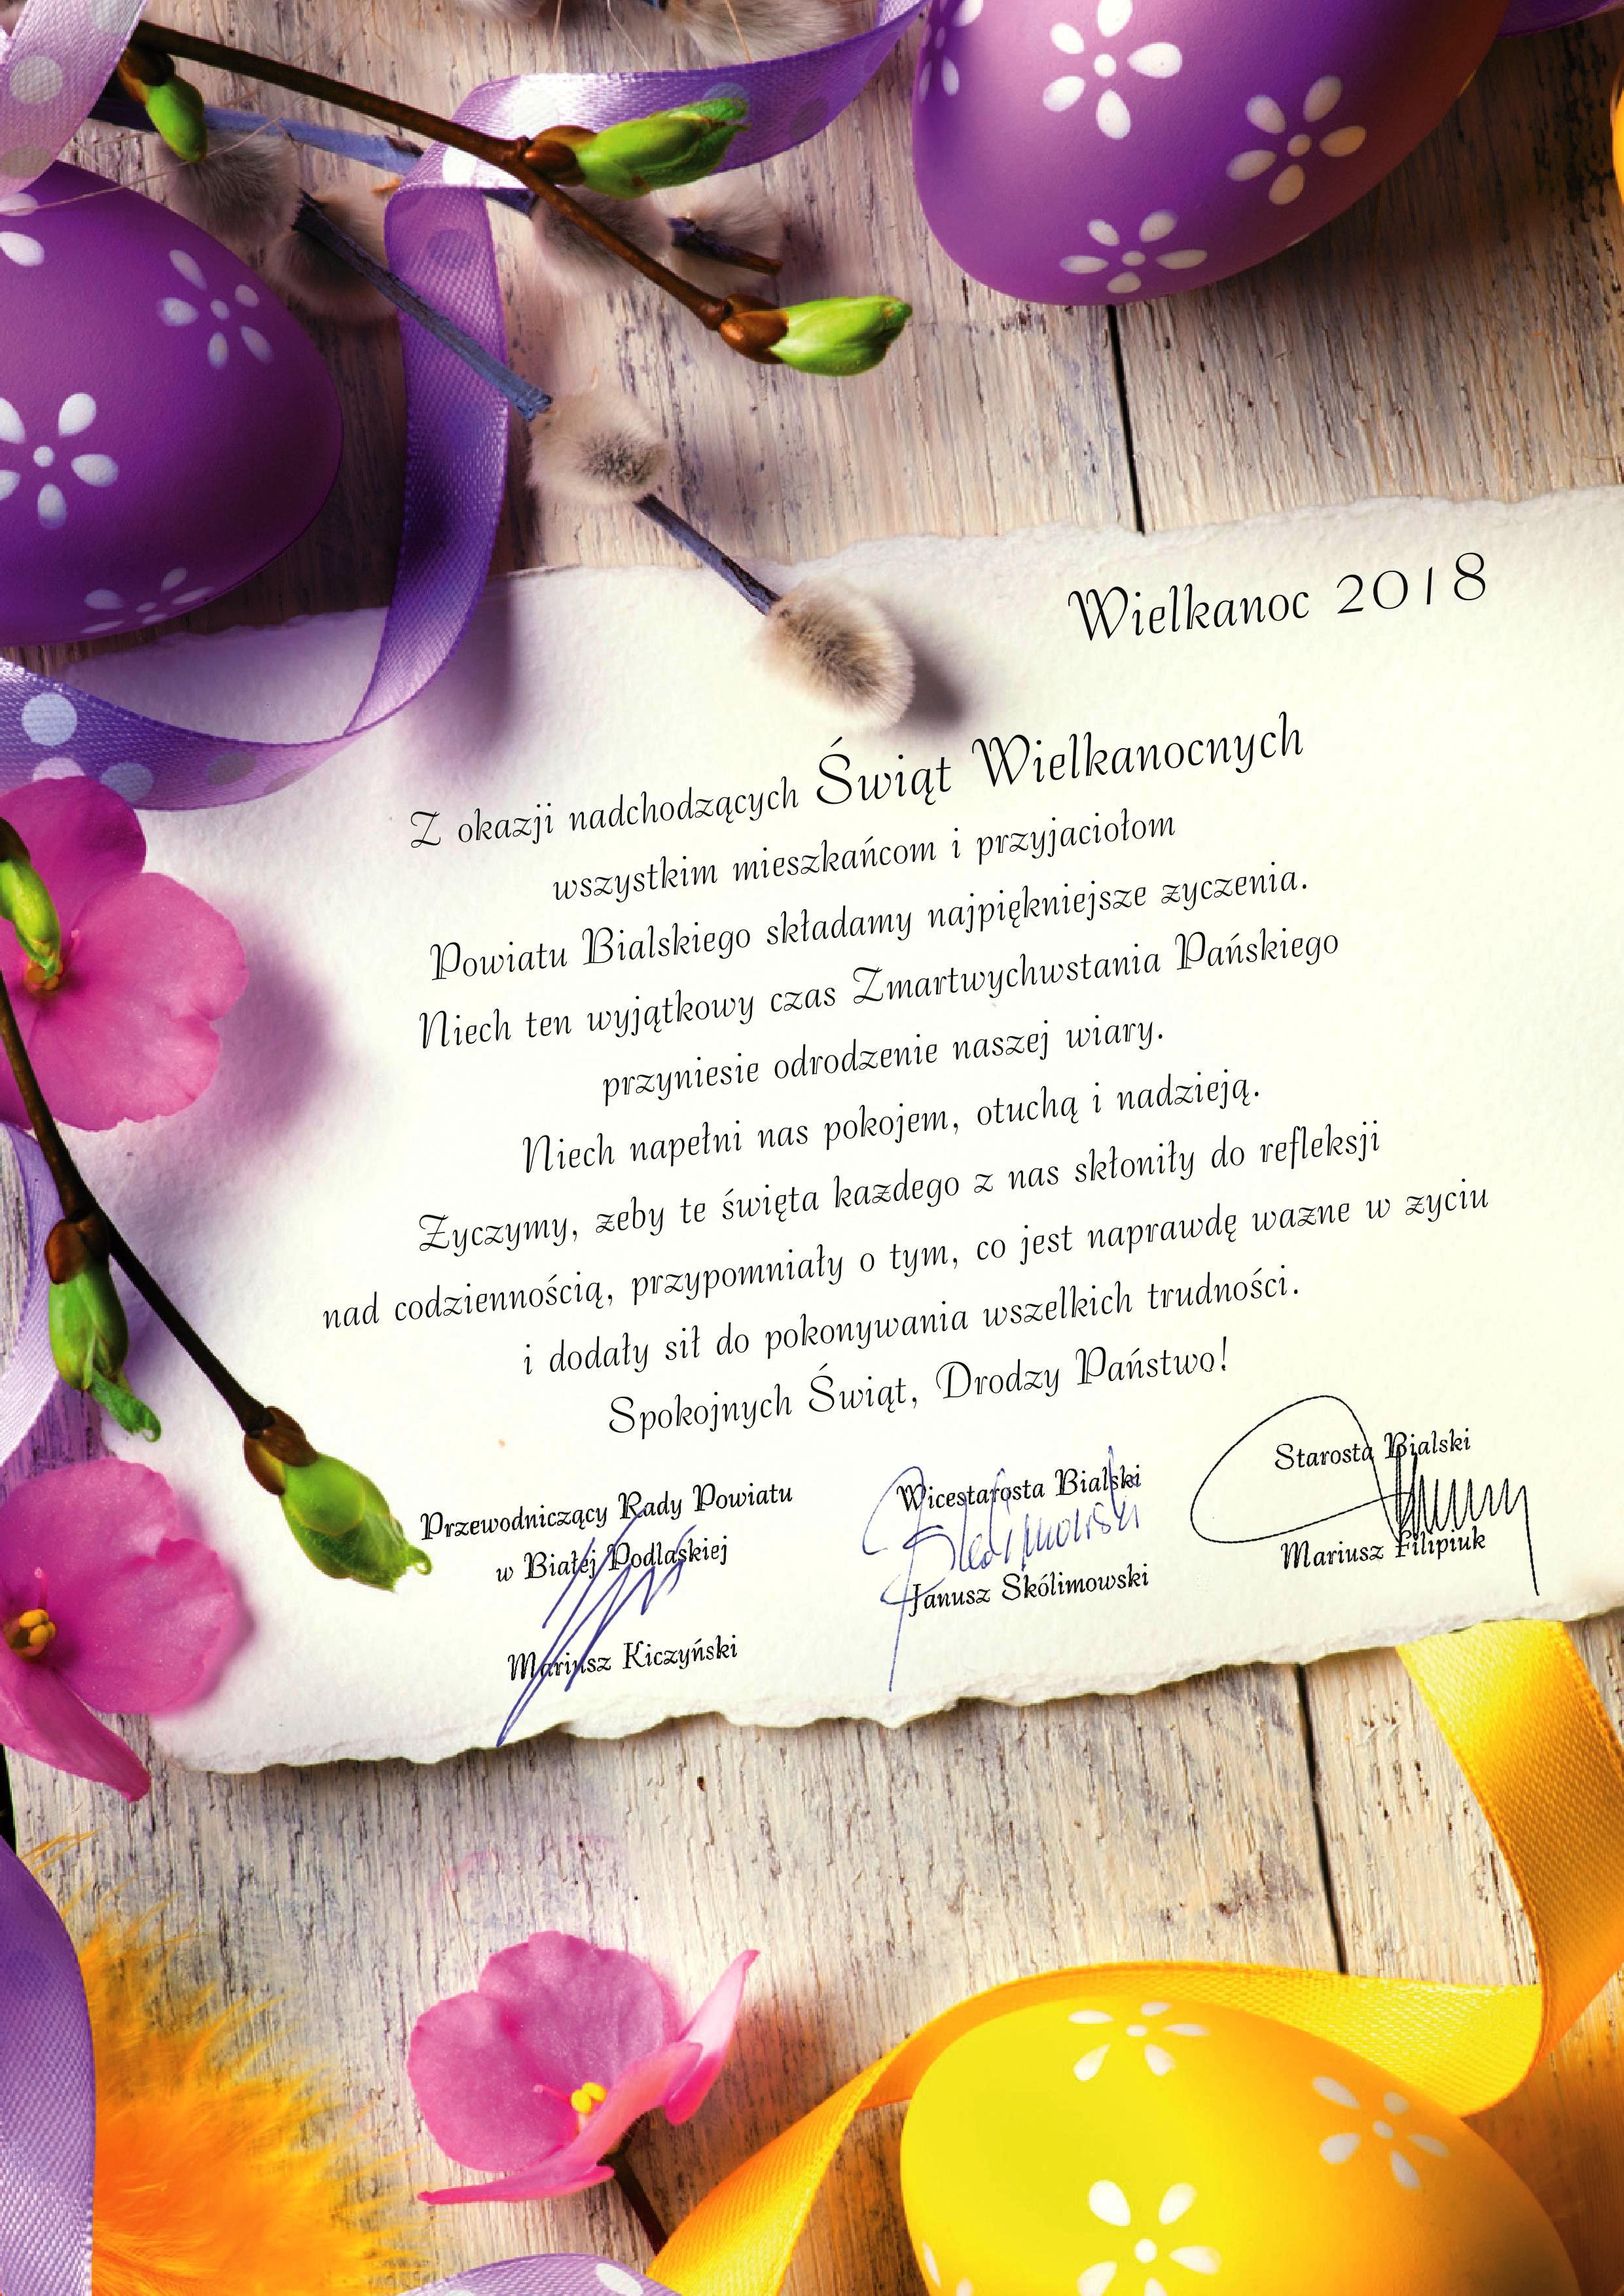 Wielkanoc 2018
Z okazji nadchodzących Świąt Wielkanocnych
wszystkim mieszkańcom i przyjaciołom
Powiatu Bialskiego składamy najpiękniejsze zyczenia.
Niech ten wyjątkowy czas Zmartwychwstania Pańskiego
przyniesie odrodzenie naszej wiary.
Niech napełni nas pokojem, otuchą i nadzieją.
Zyczymy, zeby te święta kazdego z nas skłoniły do refleksji
nad codziennością, przypomniały o tym, co jest naprawdę wazne w zyciu
i dodały sił do pokonywania wszelkich trudności.
Spokojnych Świąt, Drodzy Państwo!
Przewodniczący Rady Powiatu
w Białej Podlaskiej
Mariusz Kiczyński
Wicestarosta Bialski
Janusz Skólimowski
Starosta Bialski
Mariusz Filipiuk